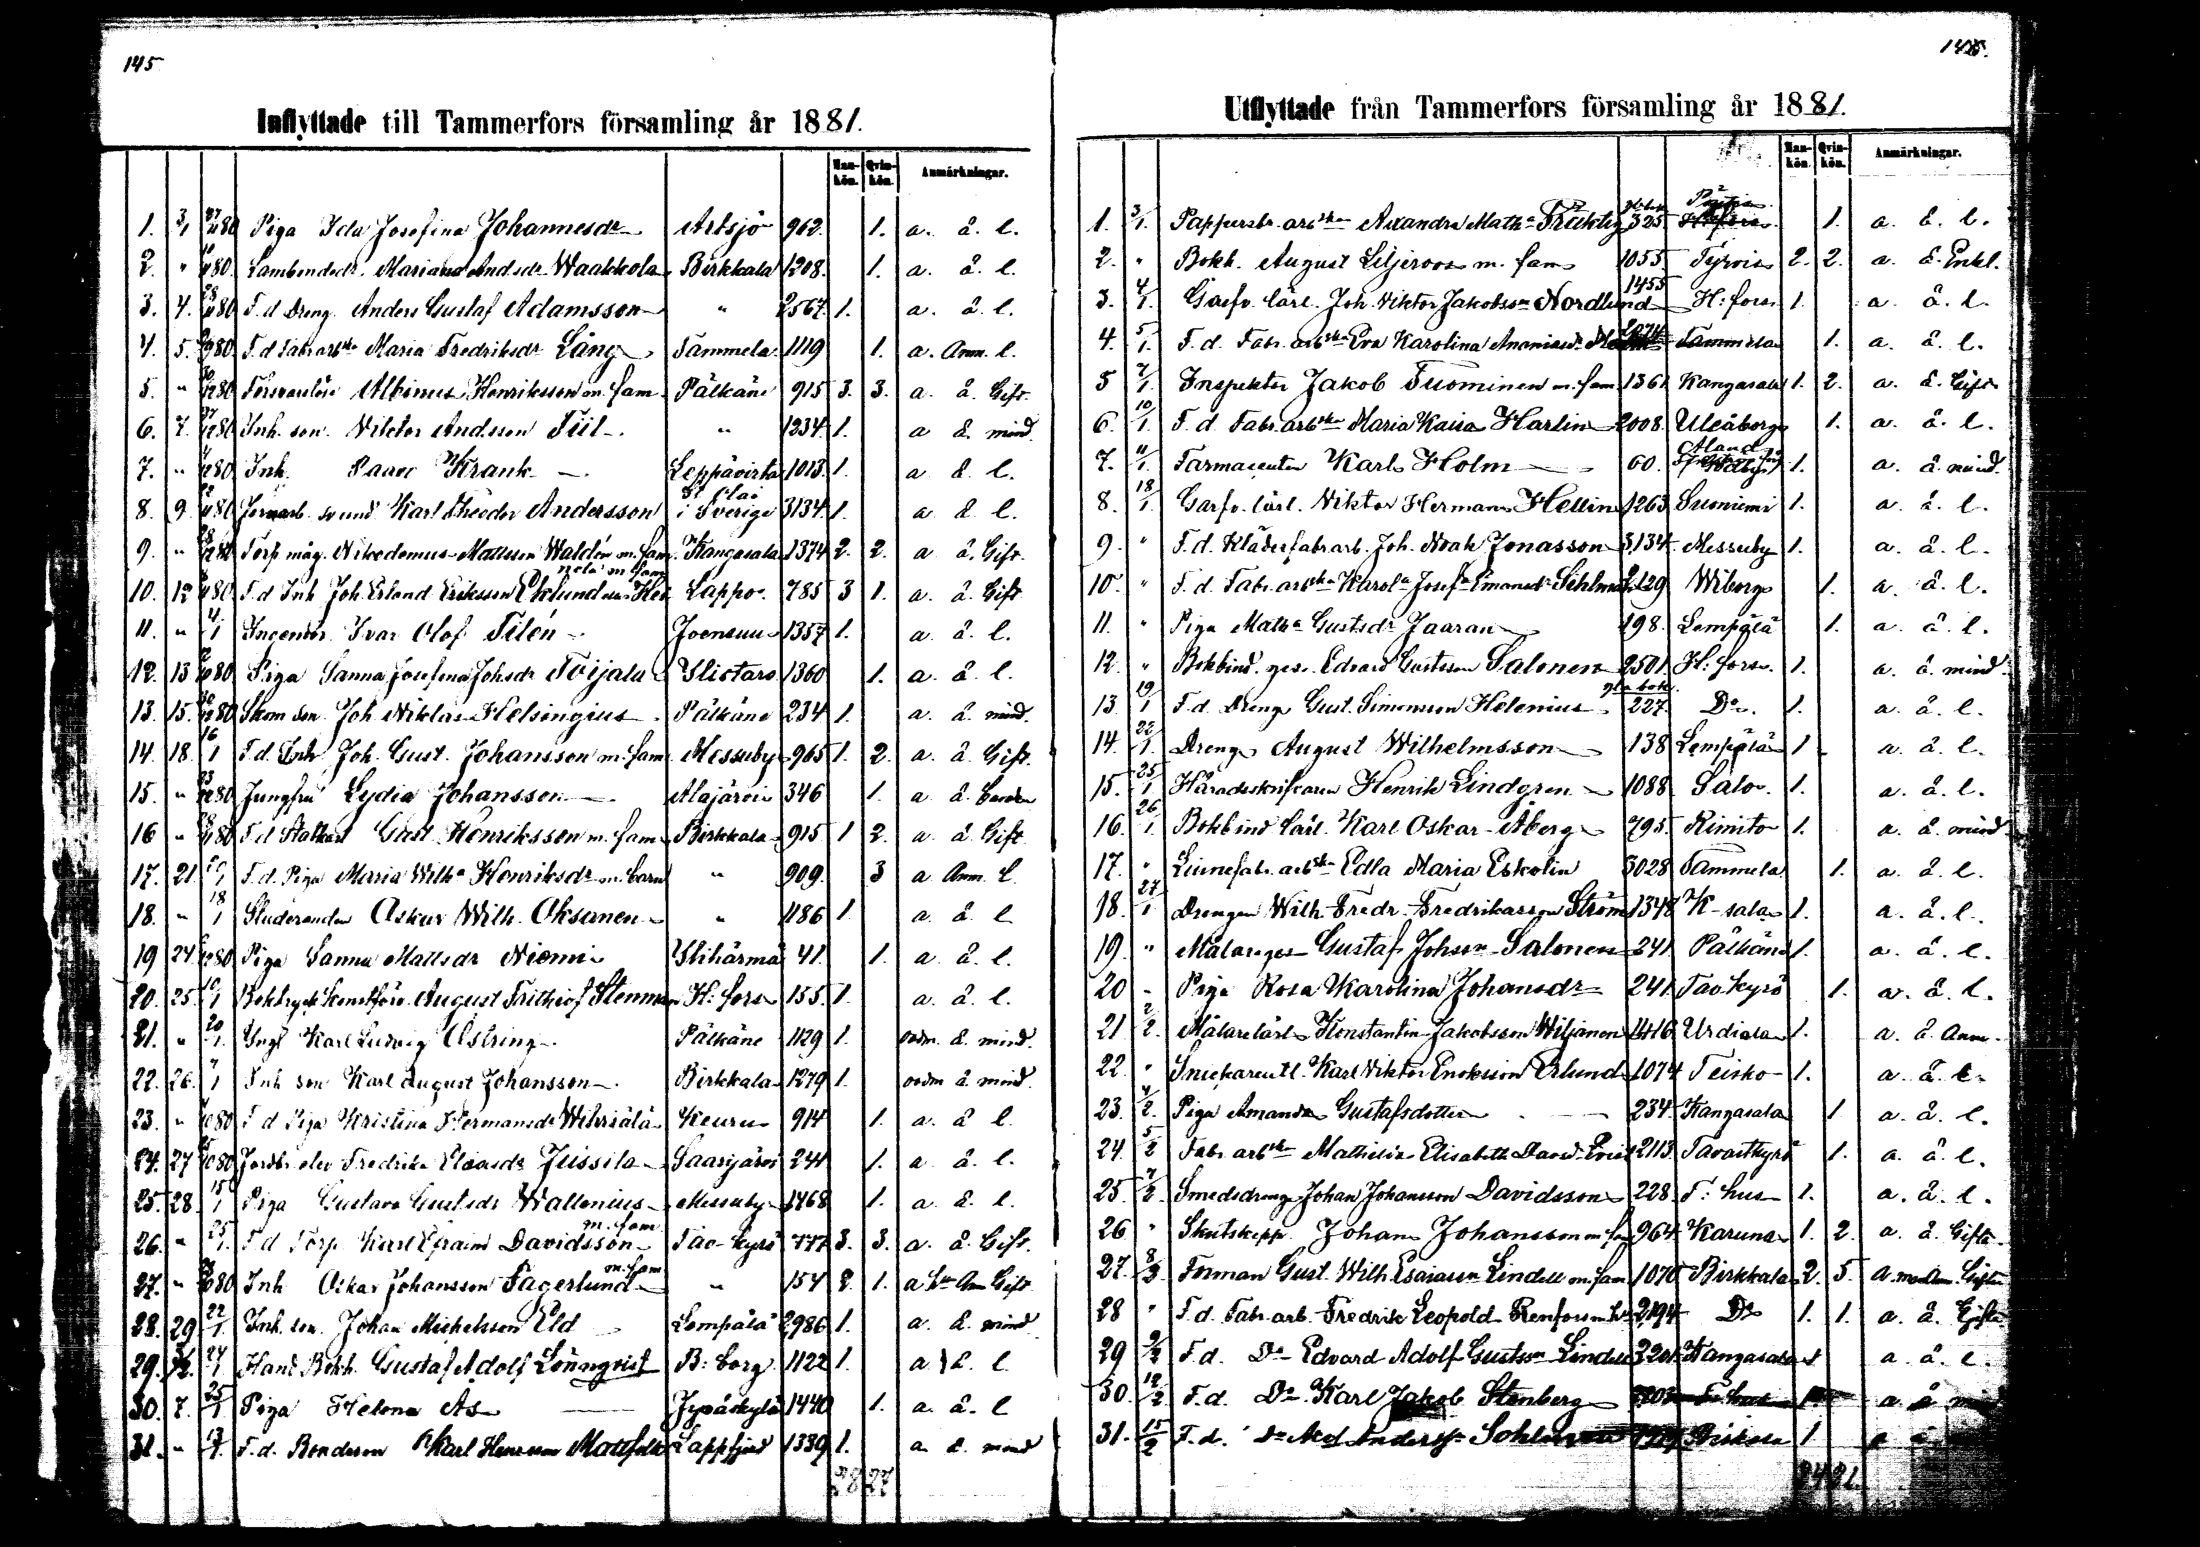 145
Inflyttade till Tammerfors församling år 1881.
Mankön. Qvinkön. Anmärkningar.
1. 3/1 80 Piga Ida Josefina Johannesdr Artsjö 962. 1. a. å. l.
2. " 80 Mariana Andsdr Waakkola Birkkala 1208. 1. a. å. l.
3. 4. 80 F. d Dreng Anders Gustaf Adamsson " 2567. 1. a. å. l.
4. 5. 80 F. d Fabr arbska Maria Fredriksdr Lång Tammela 1119 1. a. Anm. l.
5. " 80 Albinus Henriksson m. fam. Pälkäne 915 3. 3. a. å. Gift.
6. 7. 80 Inh. son. Viktor Andsson Fiil " 1234. 1. a å. mind.
7. " 80 Inh. Paavo Krank Leppävirta 1013. 1. a å. l.
8. 9. 80 Karl Theodor Andersson i Sverige 3134. 1. a å. l.
9. " 80 Torp. måg. Nikodemus Mattsson Waldén m. fam. Kangasala 1374 2. 2. a å. Gift.
10. 12 80 F. d Inh Joh. Erland Eriksson Eklund m fam Lappo. 785 3 1. a. å. Gift
11. " Ingeniör Ivar Olof Tilén Joensuu 1357 1. a. å. l.
12. 13 80 Piga Sanna Josefina Johsdr Toijala Ylistaro 1360 1. a. å. l.
13. 15. 80 Skom. son. Joh. Niklas Helsingius Pälkäne 234 1. a. å. mind.
14 18. 16/1 F. d. Inh Joh. Gust. Johansson m. fam Messuby 965 1. 2. a. å Gift.
15. " 80 Jungfru Lydia Johansson Alajärvi 346 1. a å.
16 " 80 F. d Gust. Henriksson m. fam Birkkala 915 1 2. a. å Gift.
17. 21 F. d. Piga Maria Wilha Henriksdr m. barn " 909. 3 a Anm. l.
18. " 18/1 Studeranden Oskar Wilh. Oksanen " 1186 1. a. å. l
19 24 80 Piga Sanna Mattsdr Niemi Ylihärmä 41. 1. a. å. l.
20. 25. 10/1 August Frithiof Stenman H:fors 155. 1. a. å. l.
21. " 20/1 Yngl Karl Ludvig Åstring Pälkäne 1129 1. å. mind.
22. 26. 7/1 Inh son Karl August Johansson Birkkala 1279 1. å mind.
23. " 80 F d Piga Kristina Hermansdr Wihriälä Keuru 914 1. a. å l.
24. 27 80 Jordbr. elev Fredrika Eliasdr Jussila Saarijärvi 241 1. a å. l.
25. 28. 15/1 Piga Gustava Gustsdr Wallenius Messuby 1468. 1. a å. l.
26. " 25/1. F. d Torp Karl Efraim Davidsson m. fam Tav-kyrö 777 3. 3. a. å. Gift.
27. " 80 Inh Oskar Johansson Fagerlund m. fam " 154 2. 1. Gift
28. 29 22/1 Inh. son. Johan Michelsson Eld Lempälä 2986 1. a. å. mind
29. 24/1 Hand. Bokh. Gustaf Adolf Lönnqvist B:borg 1122 1. a å. l
30. 7. 25/1 Piga Helena As Jyväskylä 1440 1. a. å. l
31. " F. d. Bondeson Karl Lappfjerd 1339 1. a. å. mind
28 27
Utflyttade från Tammerfors församling år 1881.
Mankön. Qvinkön. Anmärkningar.
1. 3/1. Pappersbr. arbska Math 325 1. a å. l.
2. " Bokh. August Liljeroos m. fam 1055. Tyrvis 2. 2. a. å. Enkl.
3. 4/1. Garfv. lärl. Joh. Viktor Jakobsson Nordlund 1455 H:fors 1. a å. l.
4. 5/1. F. d. Fabr. arbska Eva Karolina 2074 Tammela 1. a. å. l.
5 7/1. Inspektor Jakob Tuominen m. fam. 1361 Kangasala 1. 2. a. å. Gift.
6. 10/1. F. d. Fabr. arbska Maria Kaisa Harlin 2008. Uleåborg 1. a. å. l.
7. 11/1. Farmaceuten Karl Holm 60. Åland 1. a. å mind.
8. 18/1. Garfv. lärl. Viktor Herman Hellin 1263 Suoniemi 1. a. å. l.
9. " F. d. Klädesfabr arb. Joh. Noak Jonasson 3134. Messuby 1. a. å. l.
10. " F. d. Fabr. arbska Karola Josefa 2129 Wiborg 1. a. å. l.
11. " Piga Matha Gustsdr Jaaran 198. Lempälä 1. a. å. l.
12. " Bokbind. ges. Edvard Gustsson Salonen 2501 H:fors. 1. a. å mind.
13. 19/1 F. d. Dreng Gust. Simonsson Helenius gla bok. 227. Do. 1. a. å. l.
14. 22/1. Dreng August Wilhelmsson 138 Lempälä 1 a. å. l.
15. 25/1 Häradsskrifvaren Henrik Lindgren 1088 Salo. 1. a. å. l.
16. 26/1 Bokbind lärl. Karl Oskar Åberg 795. Rimito 1. a. å. mind
17. " Linnefabr. arbska Edla Maria Eskolin 3028 Tammela. 1. a. å. l.
18. 27/1 Drengen Wilh. Fredr. Fredriksson Ström 1348 K-sala 1. a. å. l.
19. " Målareges Gustaf Johsson Salonen 241. Pälkäne 1. a. å. l.
20 " Piga Rosa Karolina Johansdr 241. Tav.kyrö 1. a. å. l.
21 2/2. Målarelärl Konstantin Jakobsson Wiljanen 1416. Urdiala 1. a. å Anm.
22. " Snickare Karl Viktor Enoksson Erlund 1074 Teisko 1. a. å. l.
23. 4/2. Piga Amanda Gustafsdotter 234. Kangasala 1 a. å. l.
24. 5/2 Fabr arbska Mathilda Elisabeth 2113. Tavastkyrö 1. a. å. l.
25. 7/2. Smedsdreng Johan Johansson Davidsson 228. T:hus 1. a. å. l.
26 " Johan Johansson m. fam 964. Karuna 1. 2. a. å. Gifta
27. 8/2. Forman Gust. Wilh. Esaiasson Lindell m. fam 1070 Birkkala 2. 5. Gifta
28 " F. d. Fabr. arb. Fredrik Leopold Renfors 2194 Do 1. 1. a. å. Gifta
29 9/2 F. d. Do Edvard Adolf Gustsson Lindell Kangasala 1 a. å. l.
30. 12/2 F. d. Do Karl Jakob Stenberg a å
31. 15/2 F. d. Do 1
24 21.